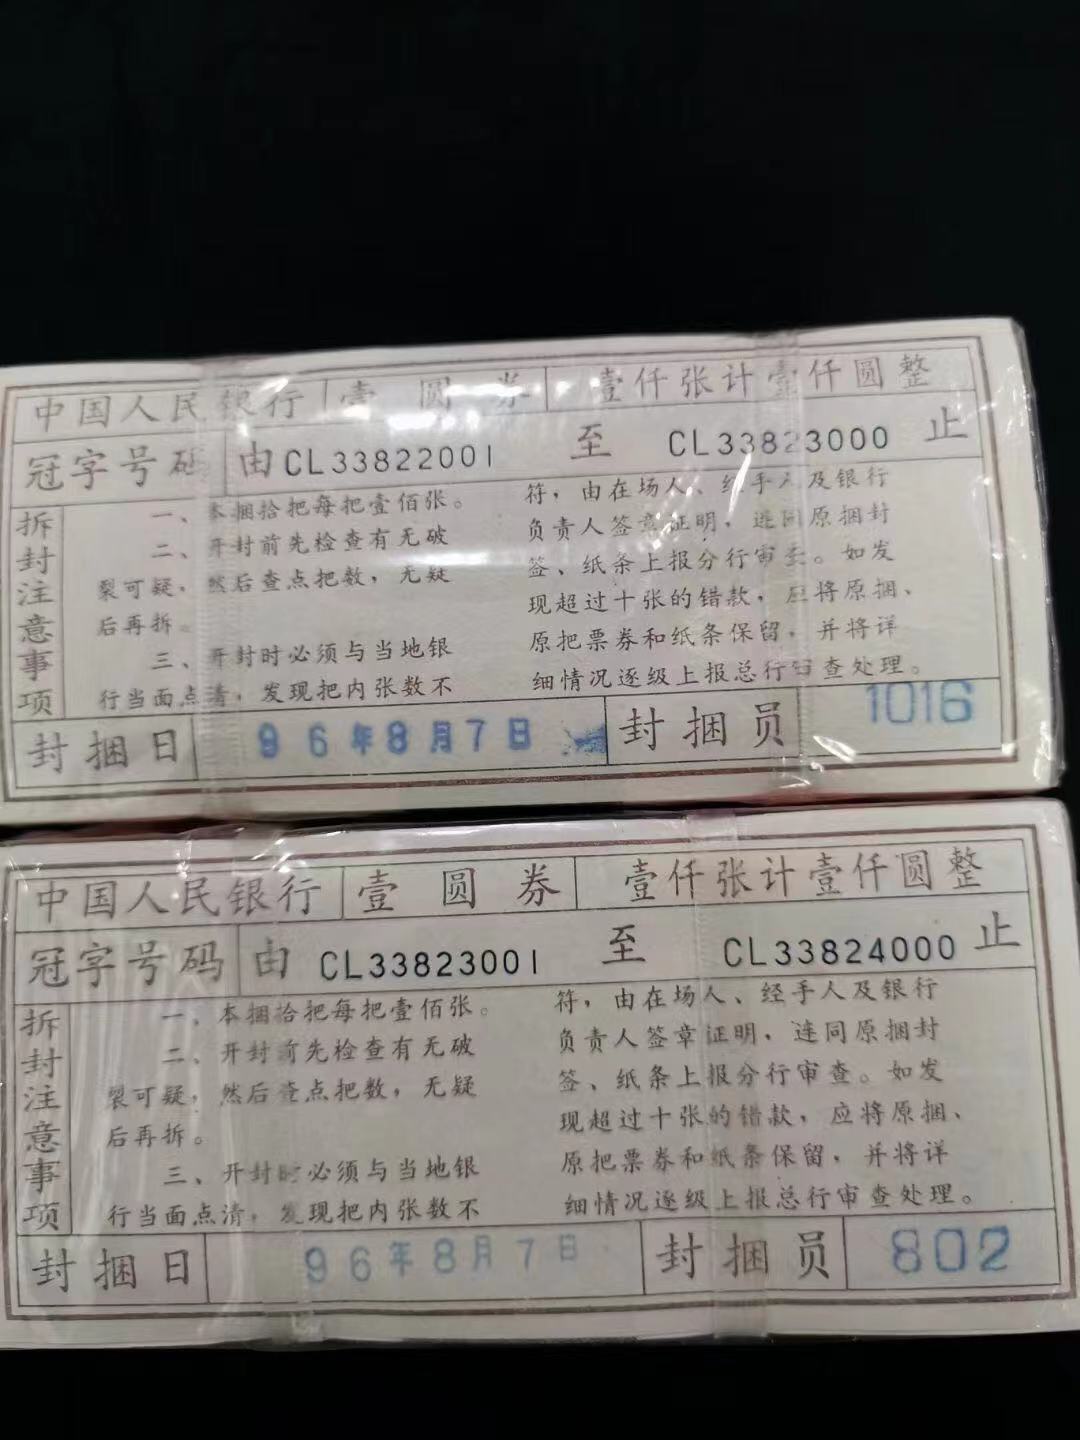 中国人民银行 壹圆券 壹仟张计壹仟圆整
冠字号码 由CL33822001 至 CL33823000 止
拆封注意事项
一、本捆拾把每把壹佰张。
二、开封前先检查有无破
裂可疑，然后查点把数，无疑
后再拆。
三、开封时必须与当地银
行当面点清，发现把内张数不
符，由在场人、经手人及银行
负责人签章证明，连同原捆封
签、纸条上报分行审查。如发
现超过十张的错款，应将原捆、
原把票券和纸条保留，并将详
细情况逐级上报总行审查处理。
封捆日 96年8月7日 封捆员 1016
中国人民银行 壹圆券 壹仟张计壹仟圆整
冠字号码 由 CL33823001 至 CL33824000 止
拆封注意事项
一、本捆拾把每把壹佰张。
二、开封前先检查有无破
裂可疑，然后查点把数，无疑
后再拆。
三、开封时必须与当地银
行当面点清，发现把内张数不
符，由在场人、经手人及银行
负责人签章证明，连同原捆封
签、纸条上报分行审查。如发
现超过十张的错款，应将原捆、
原把票券和纸条保留，并将详
细情况逐级上报总行审查处理。
封捆日 96年8月7日 封捆员 802